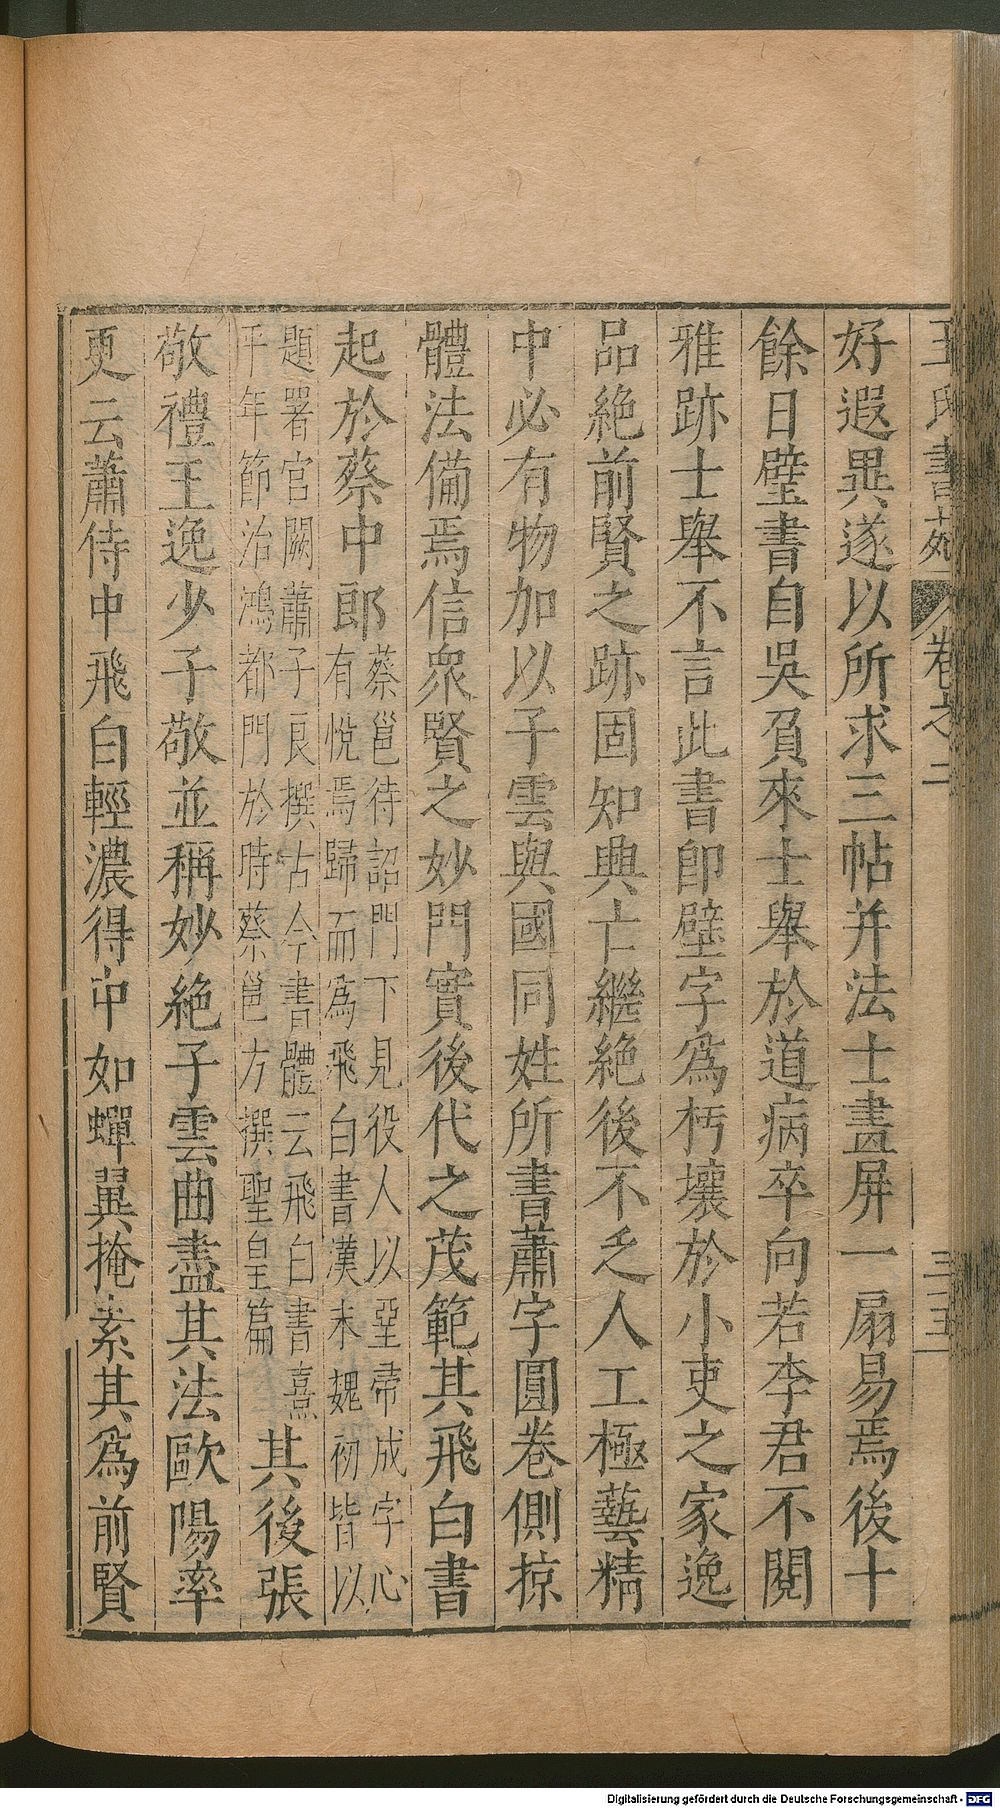 王氏書苑 卷之二 三十五
好遐異遂以所求三帖并法士畫屏一扇易焉後十
餘日壁書自吳負來士舉於道病卒向若李君不閱
雅跡士舉不言此書即壁字爲朽壞於小吏之家逸
品絶前賢之跡固知興亡繼絶後不乏人工極藝精
中必有物加以子雲與國同姓所書蕭字圓卷側掠
體法備焉信衆賢之妙門實後代之茂範其飛白書
起於蔡中郎
蔡邕待詔門下見役人以堊帚成字心
有悅焉歸而爲飛白書漢末魏初皆以
題署官闕蕭子良撰古今書體云飛白書熹
平年節治鴻都門於時蔡邕方撰聖皇篇
其後張
敬禮王逸少子敬並稱妙絶子雲曲盡其法歐陽率
更云蕭侍中飛白輕濃得中如蟬翼掩素其爲前賢
Digitalisierung gefördert durch die Deutsche Forschungsgemeinschaft - DFG